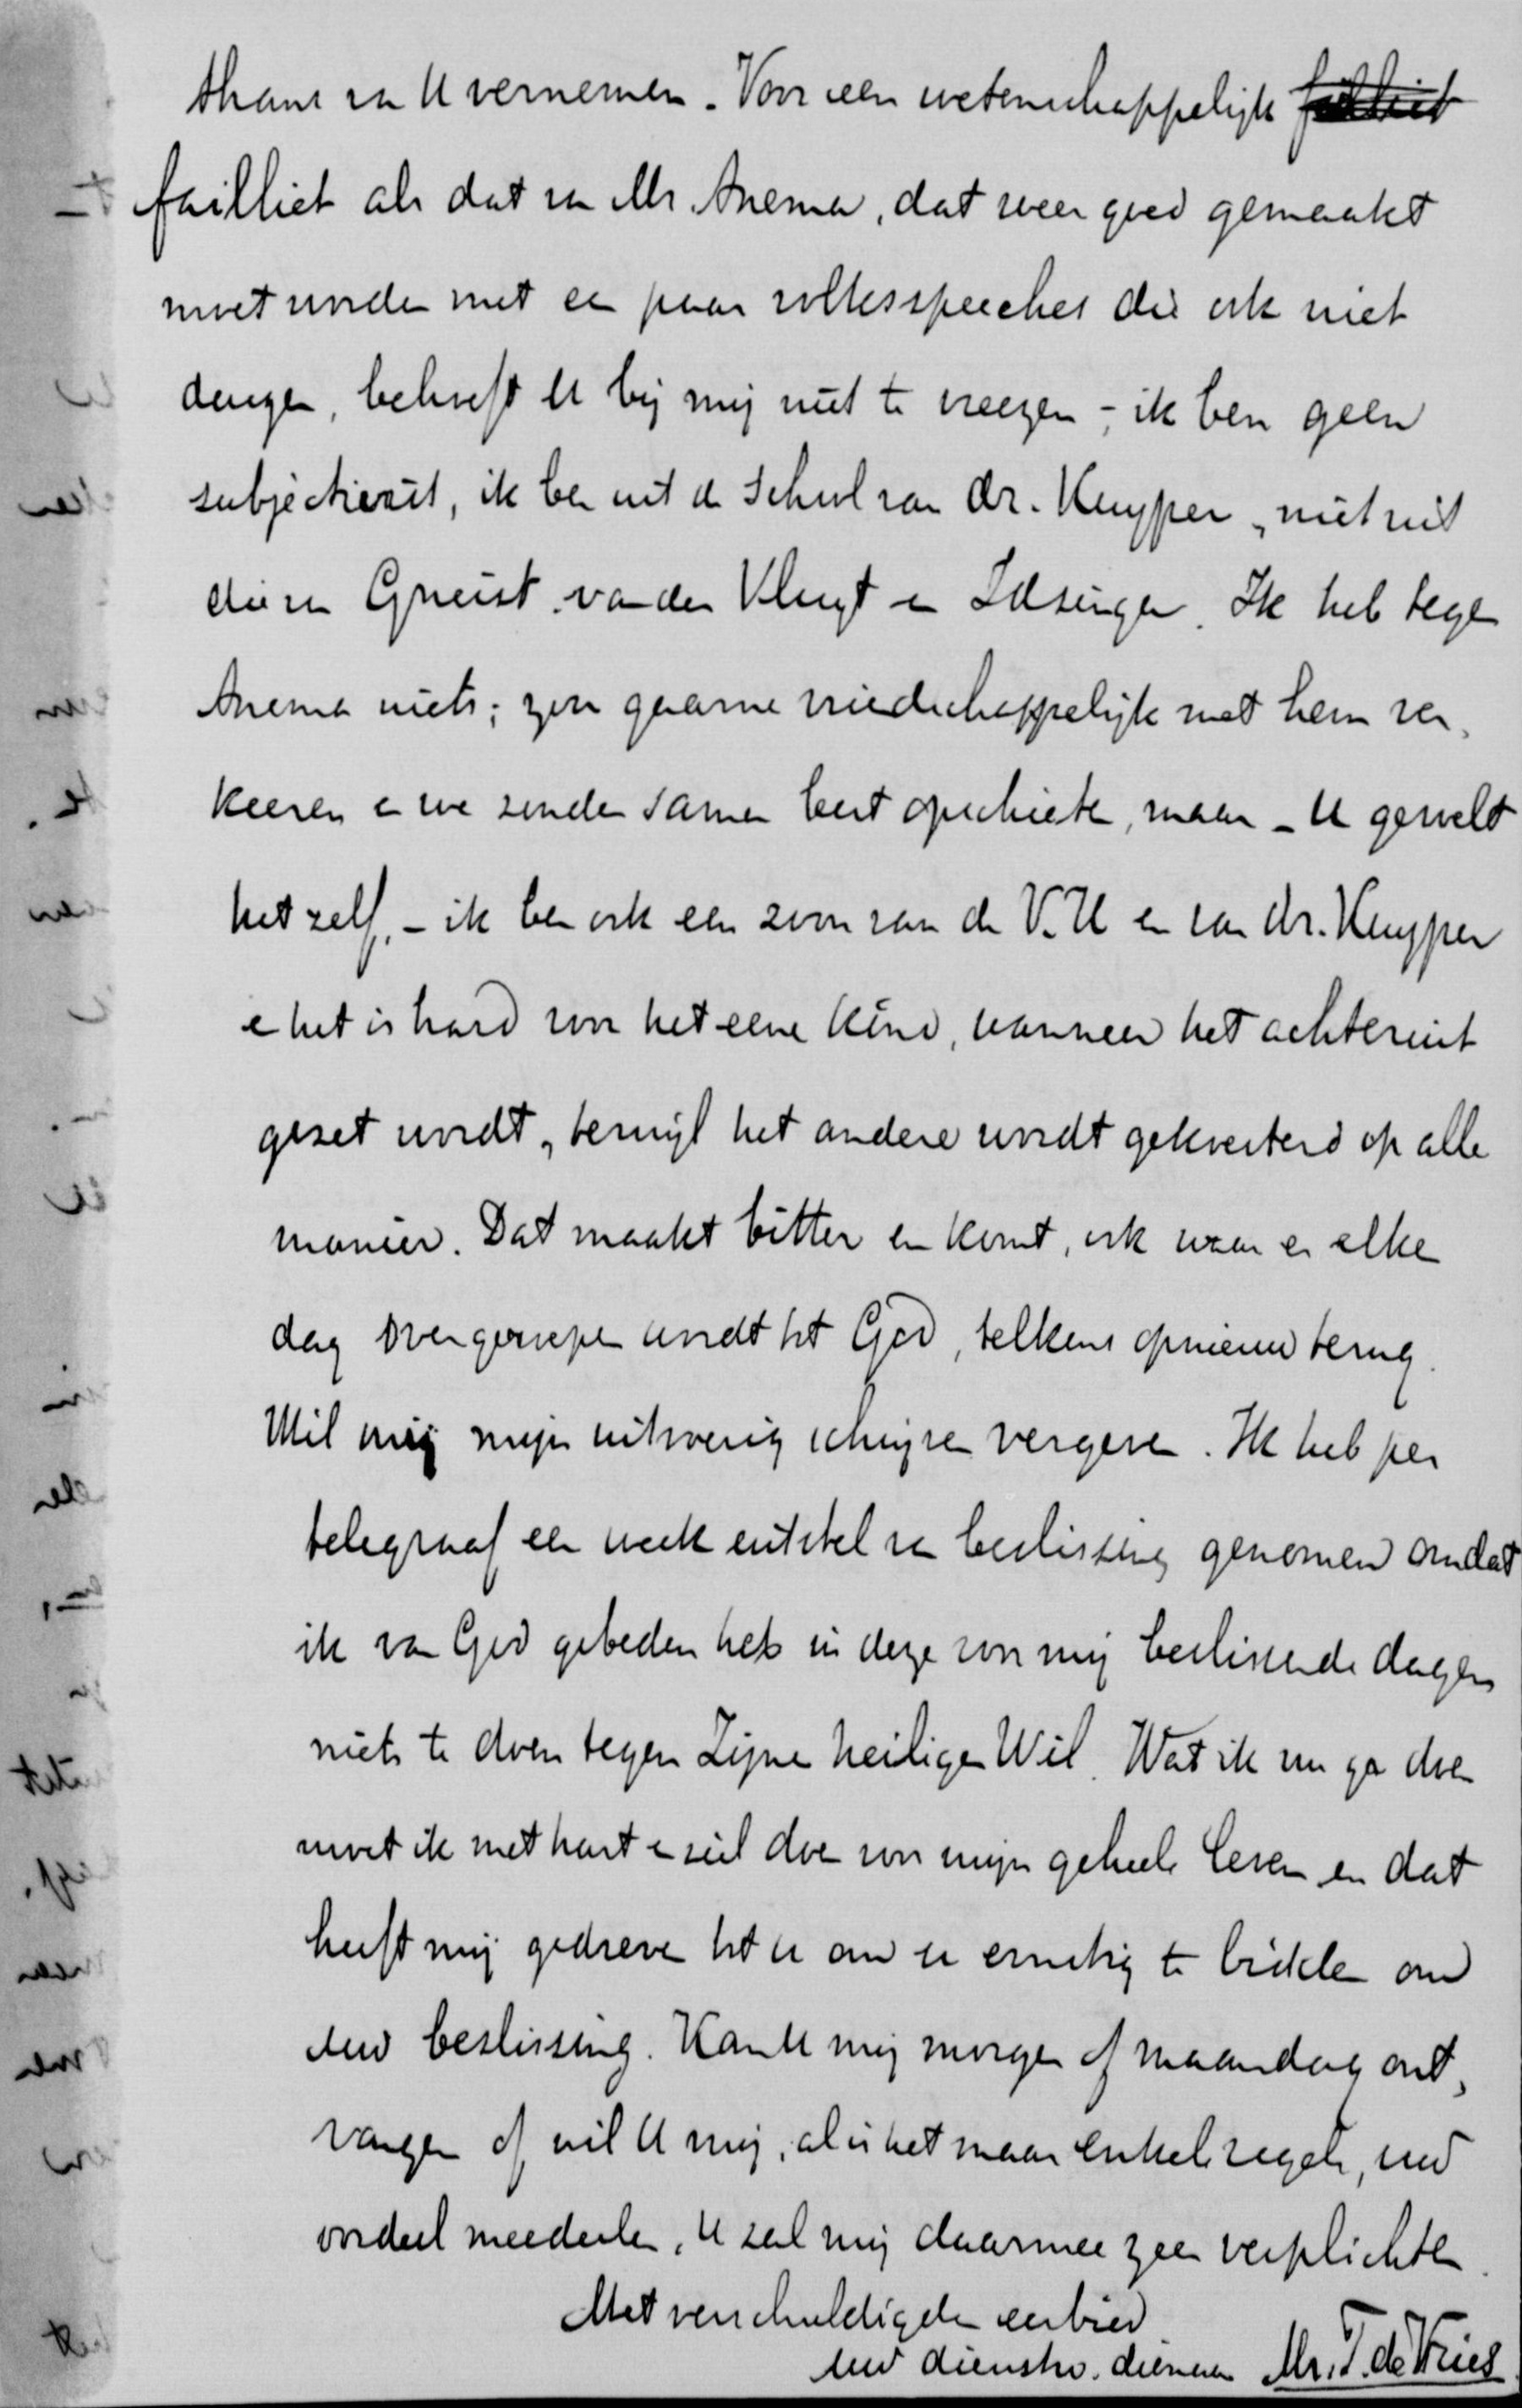 thans van U vernemen. Voor een wetenschappelijk failliet
failliet als dat van Mr. Anema, dat weer goed gemaakt
moet worden met een paar volksspeeches die ook niet
deugen, behoeft U bij mij niet te vreezen -; ik ben geen
subjectivist, ik ben uit de School van Dr. Kuyper, niet uit
die van Gneist, van der Vlugt en Idsinga. Ik heb tegen
Anema niets; zou gaarne vriendschappelijk met hem ver,
keeren en we zouden samen best opschieten, maar - U gevoelt
het zelf, - ik ben ook een zoon van de V.U en van Dr. Kuyper
en het is hard voor het eene kind, wanneer het achteruit
gezet wordt, terwijl het andere wordt gekoesterd op alle
manier. Dat maakt bitter en komt, ook waar er elke
dag over geroepen wordt tot God, telkens opnieuw terug.
Wil mij mijn uitvoerig schrijven vergeven. Ik heb per
telegraaf een week uitstel van beslissing genomen omdat
ik van God gebeden heb in deze voor mij beslissende dagen
niets te doen tegen Zijne heilige Wil. Wat ik nu ga doen
moet ik met hart en ziel doen voor mijn geheele leven en dat
heeft mij gedreven tot U om U ernstig te bidden om
Uw beslissing. Kan U mij morgen of maandag ont,
vangen of wil U mij, al is het maar enkele regels, uw
oordeel meedeelen, U zal mij daarmee zeer verplichten.
Met verschuldigden eerbied
Uw dienstw. dienaar Mr. T. de Vries